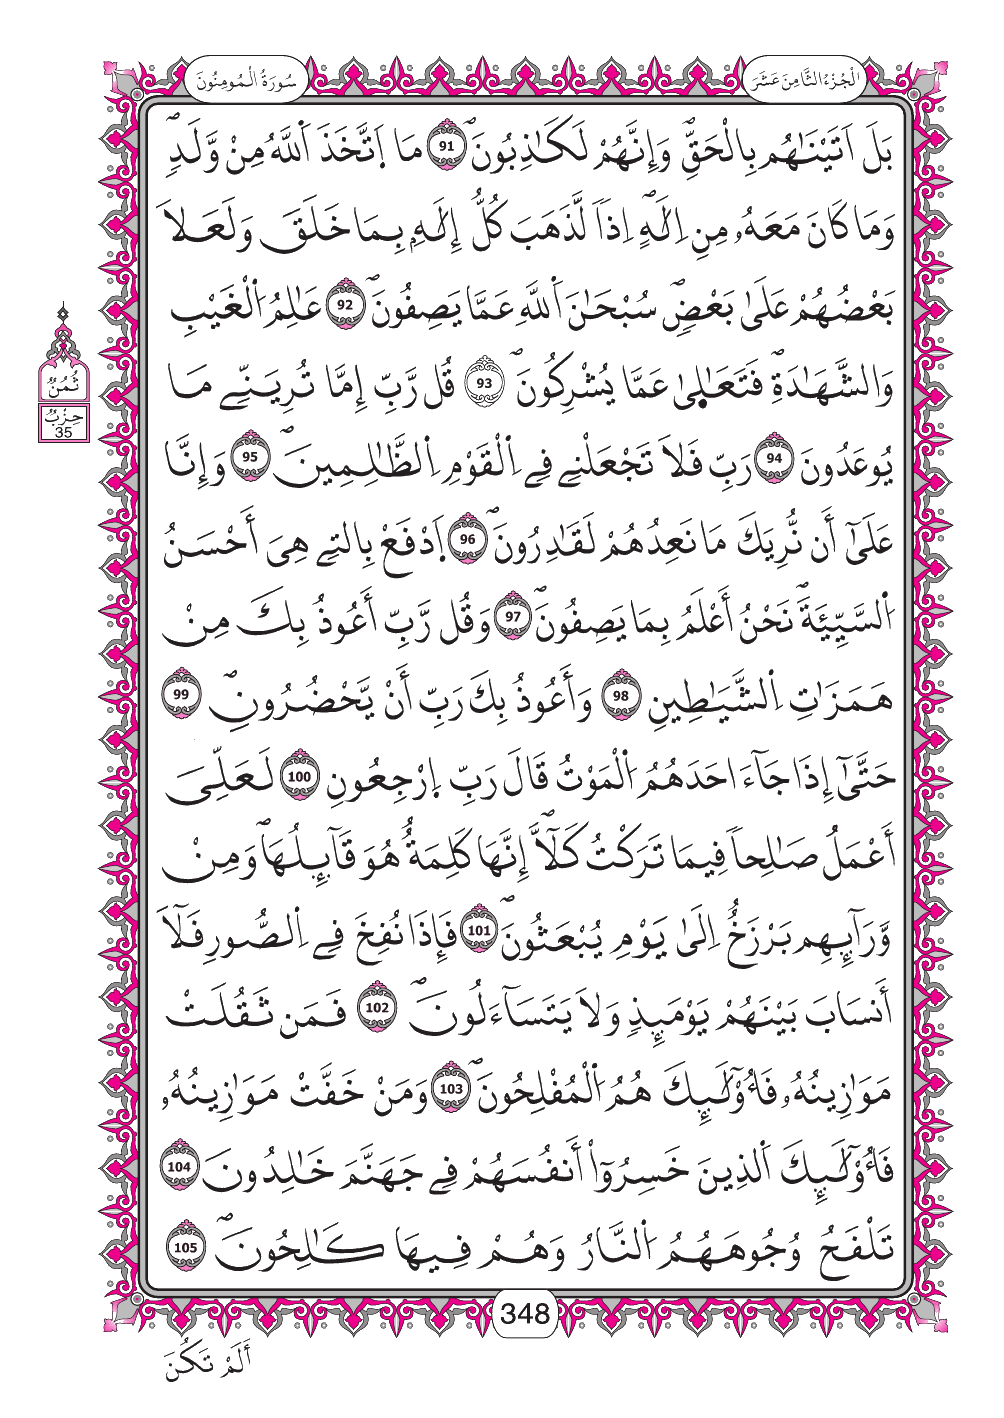 سُورَةُ الْمُومِنُونَ
الْجُزْءُ الثَّامِنَ عَشَرَ
بَلَ اَتَيْنَٰهُم بِالْحَقِّۖ وَإِنَّهُمْ لَكَٰذِبُونَۖ 91 مَا اَ۪تَّخَذَ اَ۬للَّهُ مِنْ وَّلَدٖۖ
وَمَا كَانَ مَعَهُۥ مِنِ اِلَٰهٍۖ اِذاٗ لَّذَهَبَ كُلُّ إِلَٰهِۢ بِمَا خَلَقَ وَلَعَلَا
بَعْضُهُمْ عَلَىٰ بَعْضٖۖ سُبْحَٰنَ اَ۬للَّهِ عَمَّا يَصِفُونَۖ 92 عَٰلِمُ اُ۬لْغَيْبِ
وَالشَّهَٰدَةِۖ فَتَعَٰلىٰ عَمَّا يُشْرِكُونَۖ 93 قُل رَّبِّ إِمَّا تُرِيَنِّے مَا
يُوعَدُونَ 94 رَبِّ فَلَا تَجْعَلْنِے فِے اِ۬لْقَوْمِ اِ۬لظَّٰلِمِينَۖ 95 وَإِنَّا
عَلَىٰٓ أَن نُّرِيَكَ مَا نَعِدُهُمْ لَقَٰدِرُونَۖ 96 اَ۪دْفَعْ بِالتِے هِيَ أَحْسَنُ
اُ۬لسَّيِّئَةَۖ نَحْنُ أَعْلَمُ بِمَا يَصِفُونَۖ 97 وَقُل رَّبِّ أَعُوذُ بِكَ مِنْ
هَمَزَٰتِ اِ۬لشَّيَٰطِينِ 98 وَأَعُوذُ بِكَ رَبِّ أَنْ يَّحْضُرُونِۖ 99
حَتَّىٰٓ إِذَا جَآءَ احَدَهُمُ اُ۬لْمَوْتُ قَالَ رَبِّ اِ۪رْجِعُونِ 100 لَعَلِّيَ
أَعْمَلُ صَٰلِحاٗ فِيمَا تَرَكْتُ كَلَّآۖ إِنَّهَا كَلِمَةٌ هُوَ قَآئِلُهَاۖ وَمِنْ
وَّرَآئِهِم بَرْزَخٌ اِلَىٰ يَوْمِ يُبْعَثُونَۖ 101 فَإِذَا نُفِخَ فِے اِ۬لصُّورِ فَلَآ
أَنسَابَ بَيْنَهُمْ يَوْمَئِذٖ وَلَا يَتَسَآءَلُونَۖ 102 فَمَن ثَقُلَتْ
مَوَٰزِينُهُۥ فَأُوْلَٰٓئِكَ هُمُ اُ۬لْمُفْلِحُونَۖ 103 وَمَنْ خَفَّتْ مَوَٰزِينُهُۥ
فَأُوْلَٰٓئِكَ اَ۬لذِينَ خَسِرُوٓاْ أَنفُسَهُمْ فِے جَهَنَّمَ خَٰلِدُونَ 104
تَلْفَحُ وُجُوهَهُمُ اُ۬لنَّارُ وَهُمْ فِيهَا كَٰلِحُونَۖ 105
ثُمُنٌ
حِزْبٌ
35
348
أَلَمْ تَكُنَ